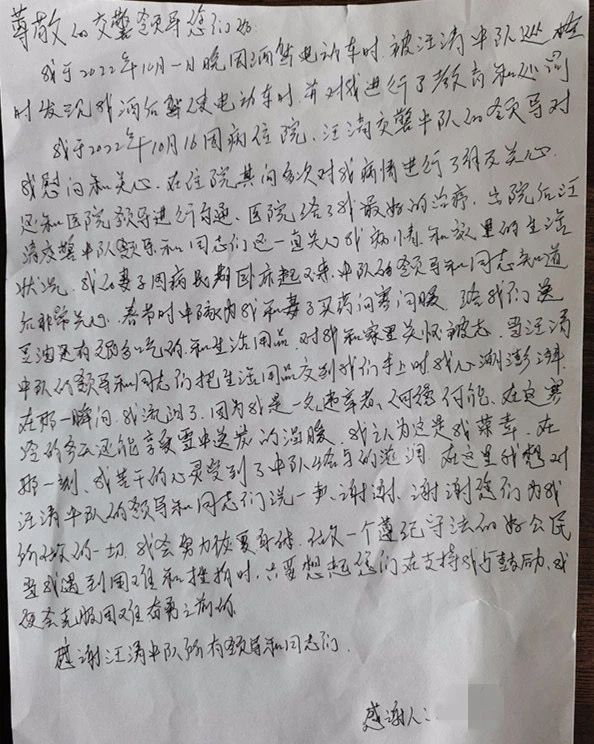 尊敬的交警领导您们好
我于2022年10月一日晚因酒驾电动车时,被汪清中队巡查
时发现我酒后驾驶电动车时,并对我进行了教育和处罚
我于2022年10月16因病住院,汪清交警中队的领导对
我慰问和关心,在住院其间多次对我病情进行了解及关心.
还和医院领导进行勾通,医院给了我最好的治疗,出院后汪
清交警中队领导和同志们还一直关心我病情,和家里的生活
状况,我的妻子因病长期卧床起不来,中队的领导和同志知道
后非常关心,春节时中队为我和妻子买药问寒问暖,给我们送
豆油还有和生活用品对我和家里关怀备志,当汪清
中队的领导和同志们把生活用品交到我们手上时我心潮澎湃.
在那一瞬间,我流泪了,因为我是一名违章者,何德何能,在这寒
冷的冬天还能享受雪中送炭的温暖,我认为这是我荣幸,在
那一刻,我苦干的心灵受到了中队给与的滋润,在这里我想对
汪清中队的领导和同志们说一声,谢谢,谢谢您们为我
所做的一切,我会努力恢复身体,做一个遵纪守法的好公民
当我遇到困难和挫折时,只要想起您们在支持我与鼓励,我
便会克服困难奋勇之前的.
感谢汪清中队所有领导和同志们.
感谢人: